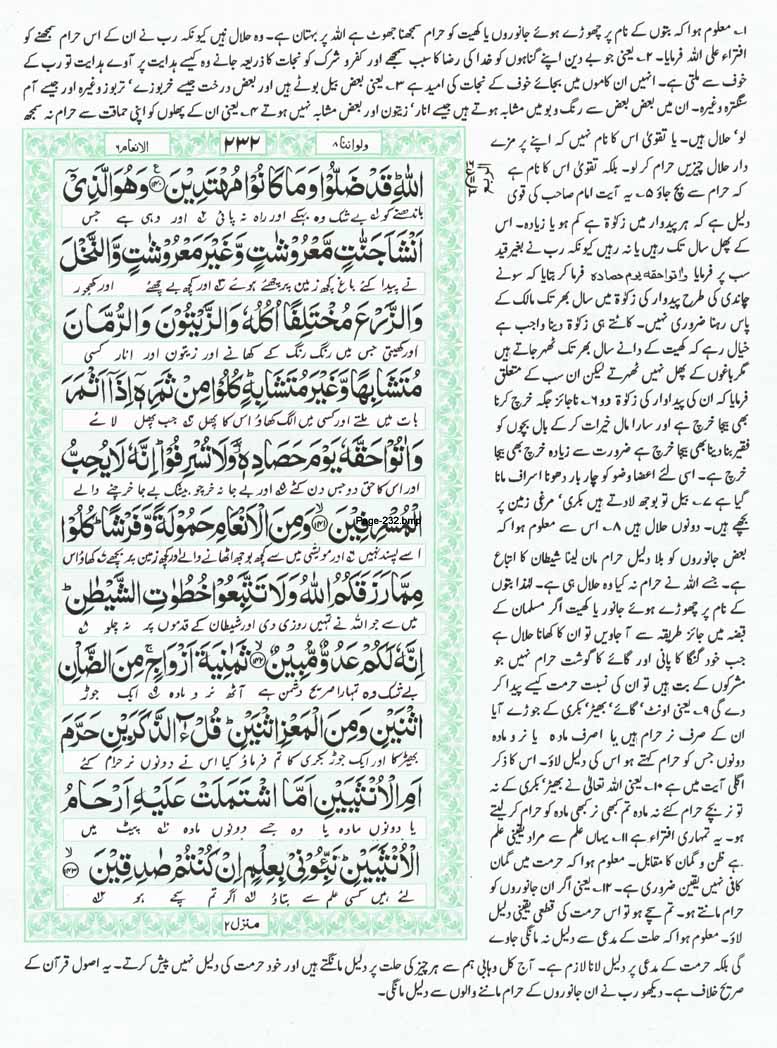 ۱؎ معلوم ہوا کہ بتوں کے نام پر چھوڑے ہوئے جانوروں یا کھیت کو حرام سمجھنا جھوٹ ہے اللہ پر بہتان ہے۔ وہ حلال ہیں کیونکہ رب نے ان کے اس حرام سمجھنے کو
افتراء علی اللہ فرمایا۔ ۲؎ یعنی جو بے دین اپنے گناہوں کو خدا کی رضا کا سبب سمجھے اور کفرو شرک کو نجات کا ذریعہ جانے وہ کیسے ہدایت پر آوے ہدایت تو رب کے
خوف سے ملتی ہے۔ انہیں ان کاموں میں بجائے خوف کے نجات کی امید ہے ۳؎ یعنی بعض بیل بوٹے ہیں اور بعض درخت جیسے خربوزے' تربوز وغیرہ اور جیسے آم
سنگترہ وغیرہ۔ ان میں بعض بعض سے رنگ و بو میں مشابہ ہوتے ہیں جیسے انار' زیتون اور بعض مشابہ نہیں ہوتے ۴؎ یعنی ان کے پھلوں کو اپنی حماقت سے حرام نہ سمجھ
لو' حلال ہیں۔ یا تقویٰ اس کا نام نہیں کہ اپنے پر مزے
دار حلال چیزیں حرام کر لو۔ بلکہ تقویٰ اس کا نام ہے
کہ حرام سے بچ جاؤ ۵؎ یہ آیت امام صاحب کی قوی
دلیل ہے کہ ہر پیداوار میں زکوٰۃ ہے کم ہو یا زیادہ۔ اس
کے پھل سال تک رہیں یا نہ رہیں کیونکہ رب نے بغیر قید
سب پر فرمایا واتوا حقہ یوم حصادہ فرما کر بتایا کہ سونے
چاندی کی طرح پیداوار کی زکوٰۃ میں سال بھر تک مالک کے
پاس رہنا ضروری نہیں۔ کاٹتے ہی زکوٰۃ دینا واجب ہے
خیال رہے کہ کھیت کے دانے سال بھر تک ٹھہر جاتے ہیں
مگر باغوں کے پھل نہیں ٹھہرتے لیکن ان سب کے متعلق
فرمایا کہ ان کی پیداوار کی زکوٰۃ دو ۶؎ ناجائز جگہ خرچ کرنا
بھی بیجا خرچ ہے اور سارا مال خیرات کر کے بال بچوں کو
فقیر بنا دینا بھی بیجا خرچ ہے ضرورت سے زیادہ خرچ بھی بیجا
خرچ ہے۔ اسی لئے اعضا وضو کو چار بار دھونا اسراف مانا
گیا ہے ۷؎ بیل تو بوجھ لادتے ہیں بکری' مرغی زمین پر
بچھے ہیں۔ دونوں حلال ہیں ۸؎ اس سے معلوم ہوا کہ
بعض جانوروں کو بلا دلیل حرام مان لینا شیطان کا اتباع
ہے۔ جسے اللہ نے حرام نہ کیا وہ حلال ہی ہے۔ لہٰذا بتوں
کے نام پر چھوڑے ہوئے جانور یا کھیت اگر مسلمان کے
قبضہ میں جائز طریقہ سے آ جاویں تو ان کا کھانا حلال ہے
جب خود گنگا کا پانی اور گائے کا گوشت حرام نہیں جو
مشرکوں کے بت ہیں تو ان کی نسبت حرمت کیسے پیدا کر
دے گی ۹؎ یعنی اونٹ' گائے' بھیڑ' بکری کے جوڑے آیا
ان کے صرف نر حرام ہیں یا صرف مادہ یا نر و مادہ
دونوں جس کو حرام کہتے ہو اس کی دلیل لاؤ۔ اس کا ذکر
اگلی آیت میں ہے ۱۰؎ یعنی اللہ تعالیٰ نے بھیڑ' بکری کے نہ
تو نر بچے حرام کئے نہ مادہ تم بھی نر کبھی مادہ کو حرام کر لیتے
ہو۔ یہ تمہاری افتراء ہے ۱۱؎ یہاں علم سے مراد یقینی علم
ہے ظن و گمان کا مقابل۔ معلوم ہوا کہ حرمت میں گمان
کافی نہیں یقین ضروری ہے۔ ۱۲؎ یعنی اگر ان جانوروں کو
حرام مانتے ہو۔ تم سچے ہو تو اس حرمت کی قطعی یقینی دلیل
لاؤ۔ معلوم ہوا کہ حلت کے مدعی سے دلیل نہ مانگی جاوے
گی بلکہ حرمت کے مدعی پر دلیل لانا لازم ہے۔ آج کل وہابی ہم سے ہر چیز کی حلت پر دلیل مانگتے ہیں اور خود حرمت کی دلیل نہیں پیش کرتے۔ یہ اصول قرآن کے
صریح خلاف ہے۔ دیکھو رب نے ان جانوروں کے حرام ماننے والوں سے دلیل مانگی۔
ولواننا ۸ ۲۳۲ الانعام ۶
اللّٰهِ ؕ قَدْ ضَلُّوْا وَمَا كَانُوْا مُهْتَدِیْنَ ﴿۱۴۰﴾ وَهُوَ الَّذِیْۤ
باندھنے کو بے شک وہ بہکے اور راہ نہ پائی اور وہی ہے جس
اَنْشَاَ جَنّٰتٍ مَّعْرُوْشٰتٍ وَّغَیْرَ مَعْرُوْشٰتٍ وَّالنَّخْلَ
نے پیدا کئے باغ کچھ زمین پر چھئے ہوئے اور کچھ بے چھئے اور کھجور
وَالزَّرْعَ مُخْتَلِفًا اُكُلُهٗ وَالزَّیْتُوْنَ وَالرُّمَّانَ
اور کھیتی جس میں رنگ رنگ کے کھانے اور زیتون اور انار کسی
مُتَشَابِهًا وَّغَیْرَ مُتَشَابِهٍ ؕ كُلُوْا مِنْ ثَمَرِهٖۤ اِذَاۤ اَثْمَرَ
بات میں ملتے اور کسی میں الگ کھاؤ اس کا پھل جب پھل لائے
وَاٰتُوْا حَقَّهٗ یَوْمَ حَصَادِهٖ ۖ وَلَا تُسْرِفُوْا ؕ اِنَّهٗ لَا یُحِبُّ
اور اس کا حق دو جس دن کٹے اور بے جا نہ خرچو بیشک بے جا خرچنے والے
الْمُسْرِفِیْنَ ﴿۱۴۱﴾ وَمِنَ الْاَنْعَامِ حَمُوْلَةً وَّفَرْشًا ؕ كُلُوْا
Page-232.bmp
اسے پسند نہیں اور مویشی میں سے کچھ بوجھ اٹھانے والے اور کچھ زمین پر بچھے کھاؤ اس
مِمَّا رَزَقَكُمُ اللّٰهُ وَلَا تَتَّبِعُوْا خُطُوٰتِ الشَّیْطٰنِ ؕ
میں سے جو اللہ نے تمہیں روزی دی اور شیطان کے قدموں پر نہ چلو
اِنَّهٗ لَكُمْ عَدُوٌّ مُّبِیْنٌ ﴿۱۴۲﴾ ثَمٰنِیَةَ اَزْوَاجٍ ۚ مِنَ الضَّاْنِ
بے شک وہ تمہارا صریح دشمن ہے آٹھ نر و مادہ ایک جوڑ
اثْنَیْنِ وَمِنَ الْمَعْزِ اثْنَیْنِ ؕ قُلْ ءٰٓالذَّكَرَیْنِ حَرَّمَ
بھیڑ کا اور ایک جوڑ بکری کا تم فرماؤ کیا اس نے دونوں نر حرام کئے
اَمِ الْاُنْثَیَیْنِ اَمَّا اشْتَمَلَتْ عَلَیْهِ اَرْحَامُ
یا دونوں مادہ یا وہ جسے دونوں مادہ پیٹ میں
الْاُنْثَیَیْنِ ؕ نَبِّـُٔوْنِیْ بِعِلْمٍ اِنْ كُنْتُمْ صٰدِقِیْنَ ﴿۱۴۳﴾
لئے ہیں کسی علم سے بتاؤ اگر تم سچے ہو
منزل ۲